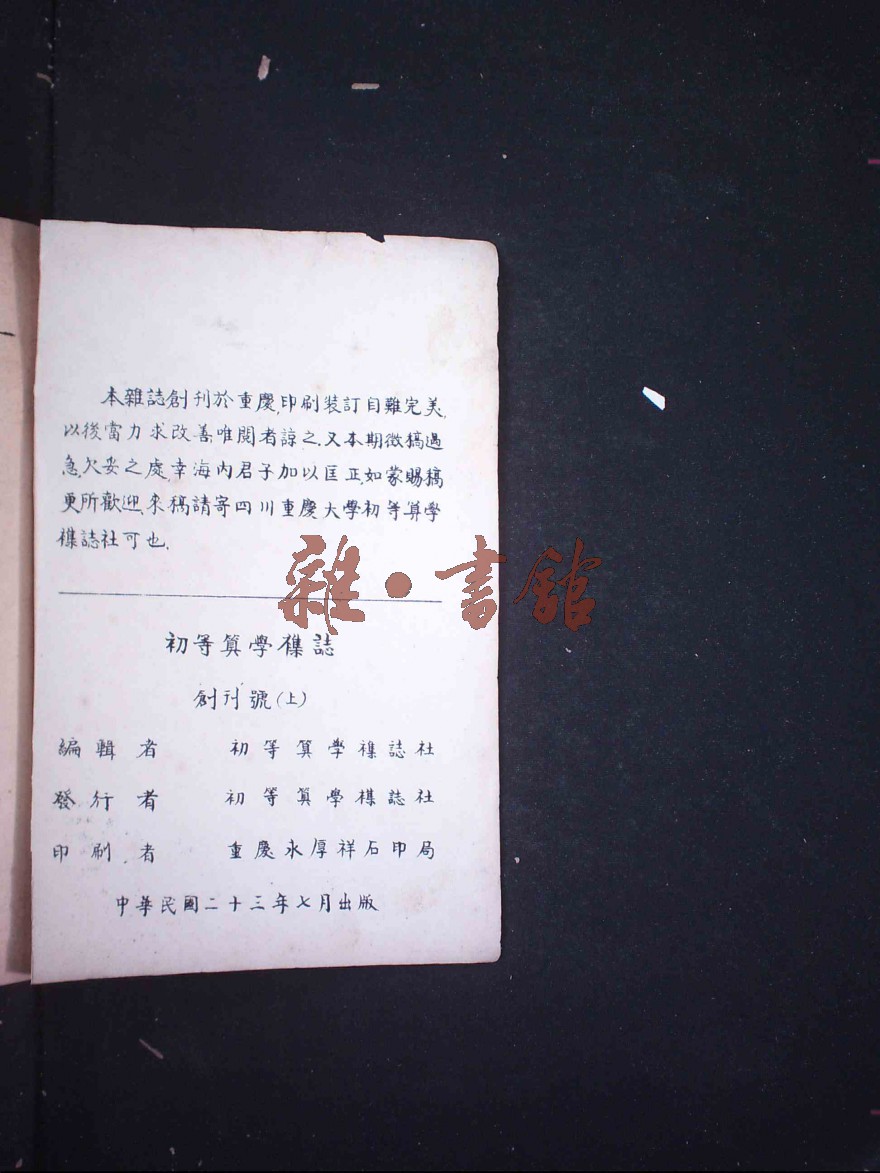 本雜誌創刊於重慶,印刷裝訂自難完美,
以後當力求改善,唯閱者諒之.又本期徵稿過
急,欠妥之處,幸海內君子加以匡正,如蒙賜稿
更所歡迎.來稿請寄四川重慶大學初等算學
襍誌社可也.
雜•書館
初等算學襍誌
創刊號(上)
編輯者 初等算學襍誌社
發行者 初等算學襍誌社
印刷者 重慶永厚祥石印局
中華民國二十三年七月出版